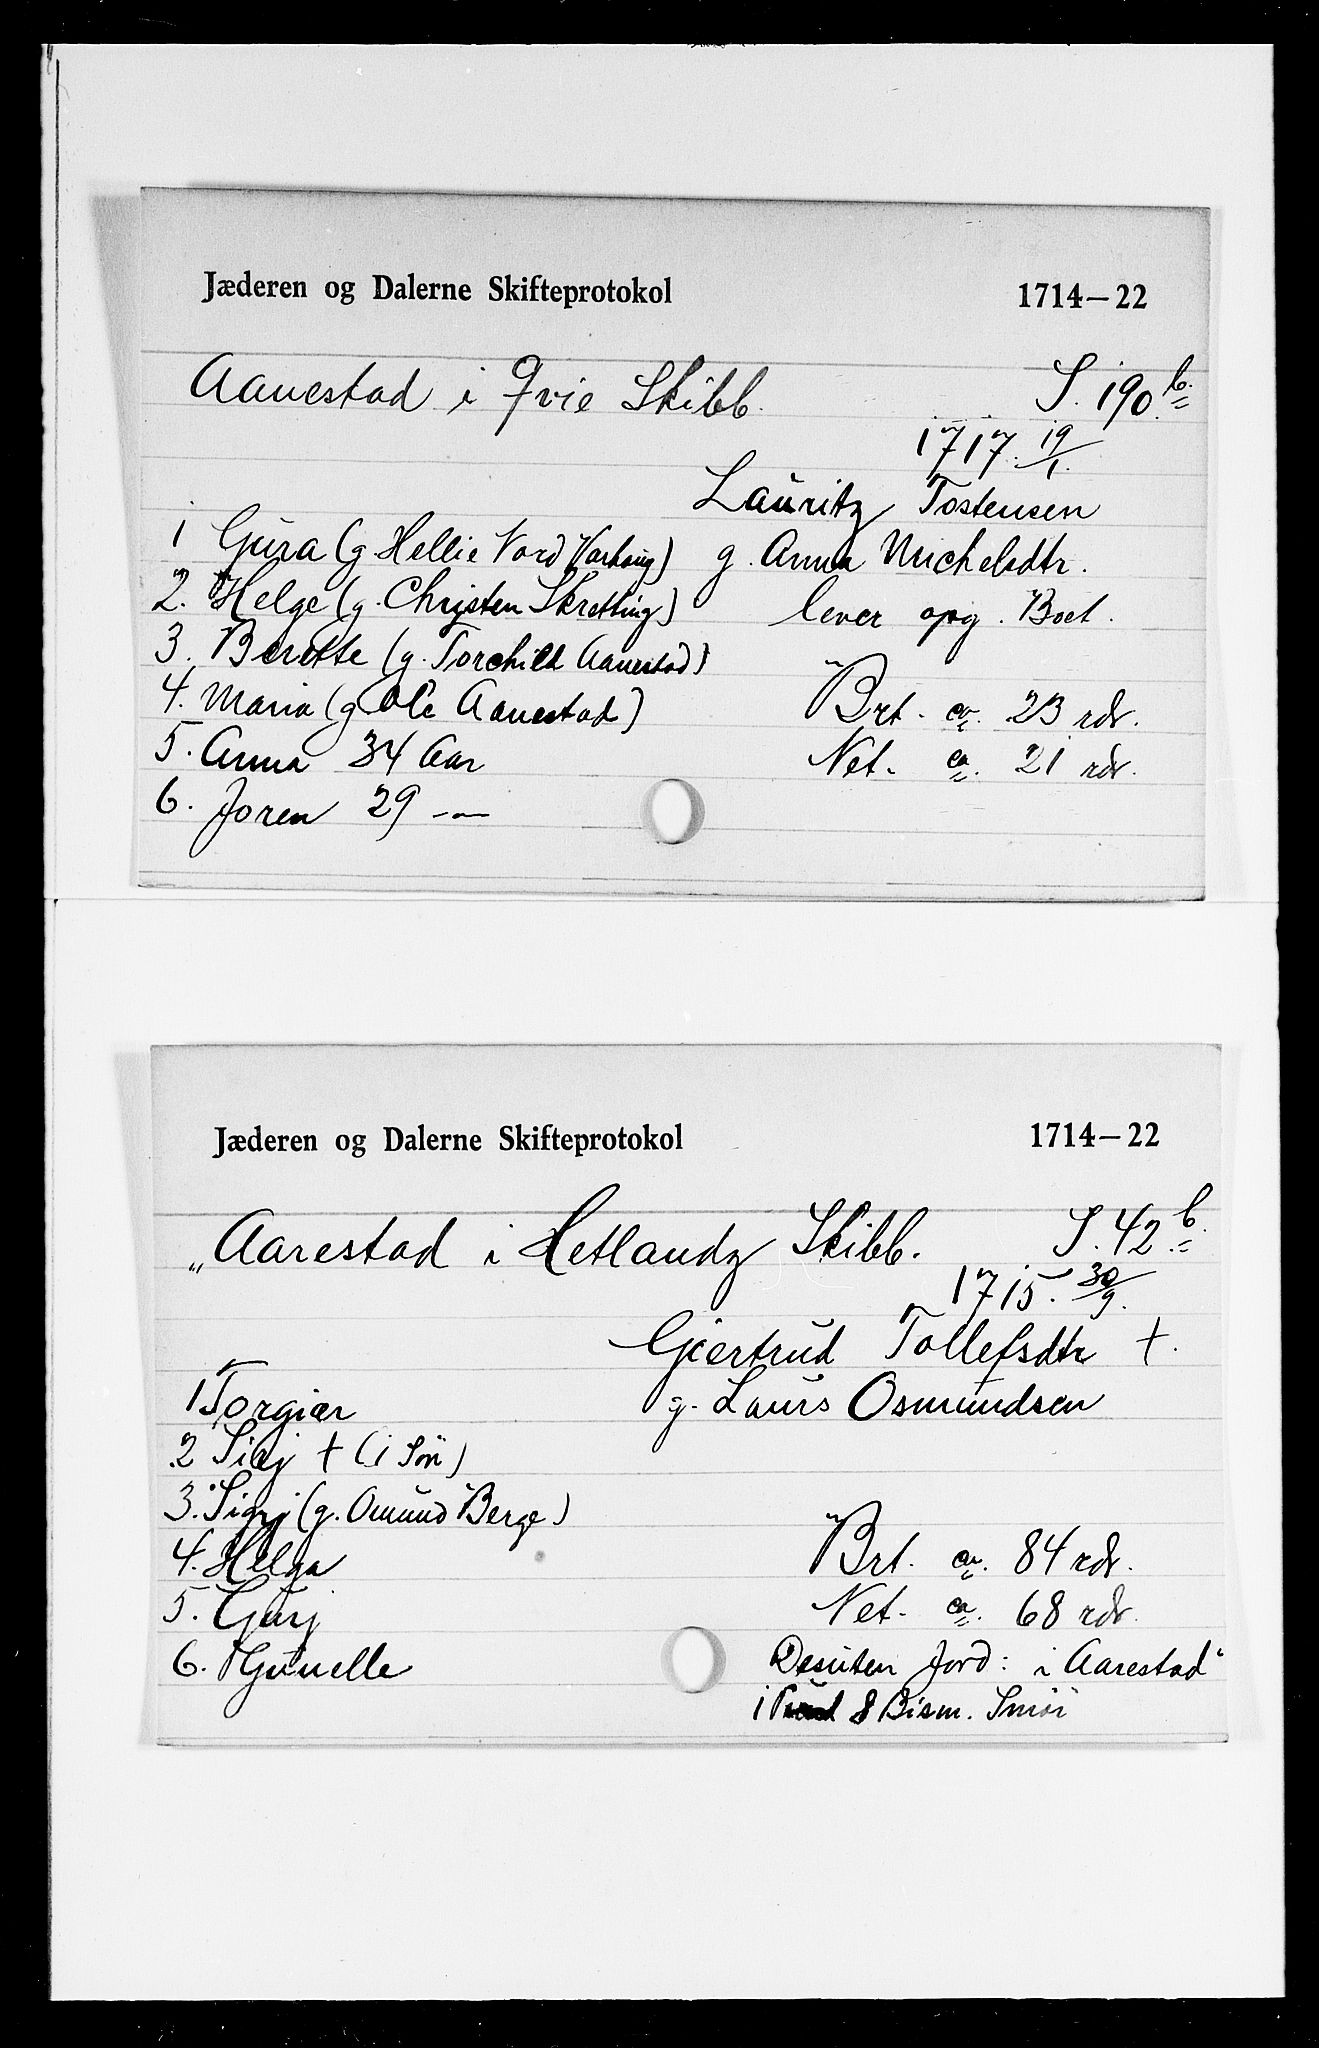 Jæderen og Dalerne Skifteprotokol 1714—22
Aanestad i Qvie Skibb. S. 190 b.
1717. 19/1.
Lauritz Tostensen
1 Gura (g. Hellie Nord Varhaug) g. Anna Michelsdtr.
2. Helge (g. Christen Skretting) lever opg. Boet.
3. Berette (g. Torchild Aanestad)
4. Maria (g Ole Aanestad) Brt. ca. 23 rdr.
5. Anna 34 Aar Net. ca. 21 rdr.
6. Joren 29 —
Jæderen og Dalerne Skifteprotokol 1714—22
„Aarestad i Hetlandz Skibb. S. 42 b.
1715. 30/9.
Giertrud Tollefsdtr †.
1 Torgier g. Laurs Osmundsen
2 Sirj † (1 Sön)
3. Sigrj (g. Omund Berge)
4. Helga Brt. ca. 84 rdr.
5. Gurj Net. ca. 68 rdr.
6. Gunelle Desuten Jord: i Aarestad“
1 8 Bism. Smör